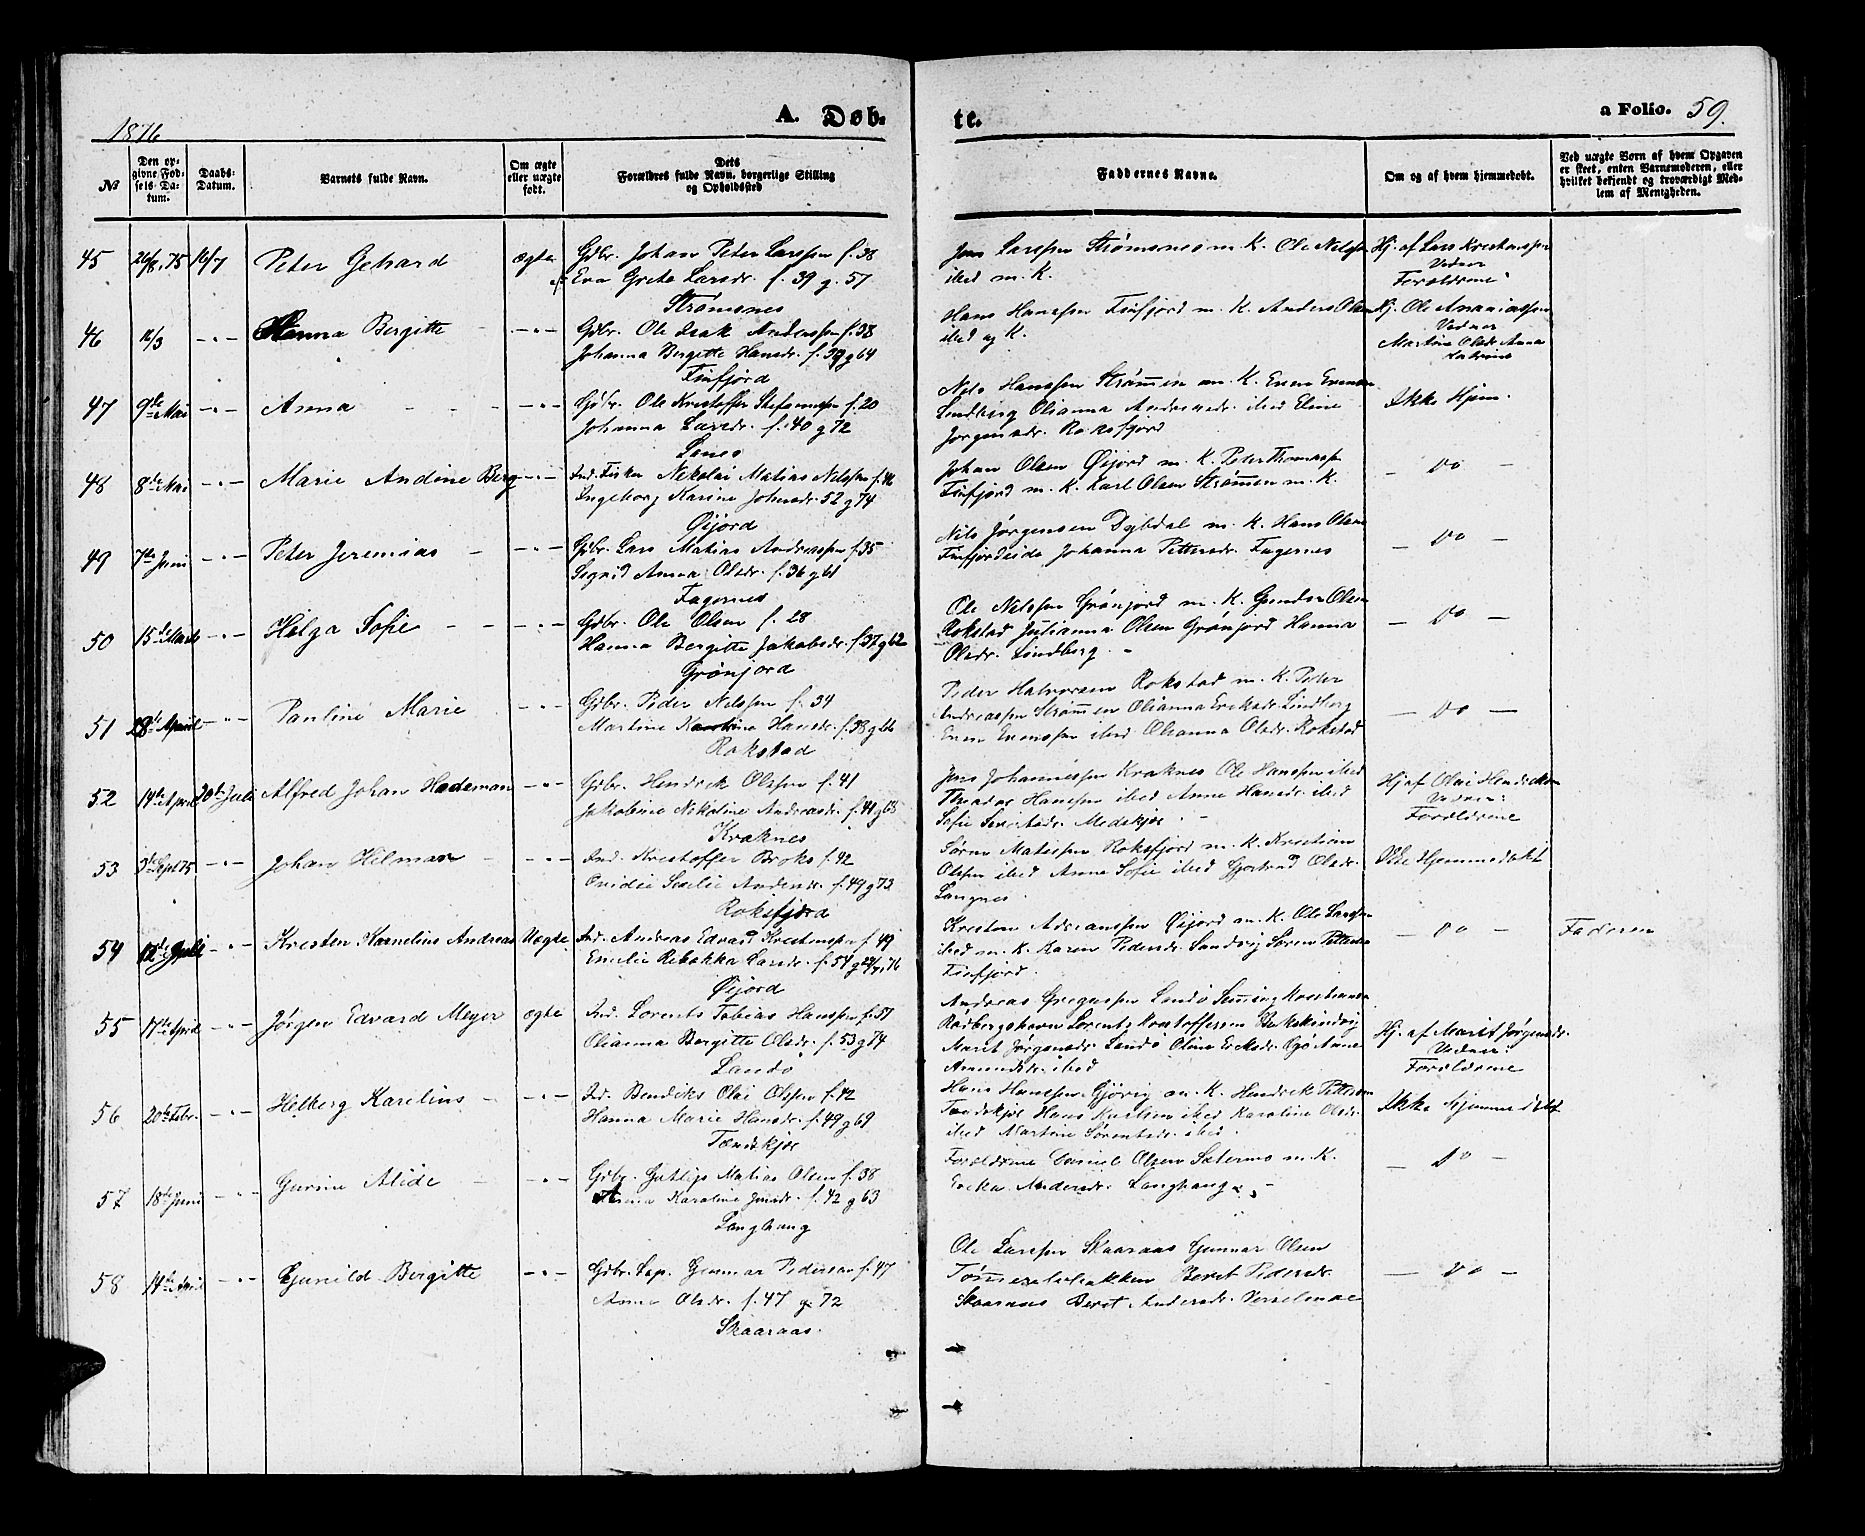 1876
A. Døb-
te.
a Folio. 59.
№
Den op-
givne Fød-
sels-Da-
tum.
Daabs-
Datum.
Barnets fulde Navn.
Om ægte
eller uægte
født.
Dets
Forældres fulde Navn, borgerlige Stilling
og Opholdssted
Faddernes Navne.
Om og af hvem hjemmedøbt.
Ved uægte Born af hvem Opgaven
er skeet, enten Barnemoderen, eller
hvilket bekjendt og troværdigt Med-
lem af Menigheden.
45 26/8,75 16/7 Peter Gehard ægte
Gdbr. Johan Peter Larssen f. 38
Eva Greta Larsdr. f. 39 g. 57
Strømsnes
Jens Larssen Strømsnes m. K. Ole Nilssen
ibed m. K.
Hj. af Lars Kristenssen
Vidner
Forældrene
46 12/3 -"- Hanna Bergitte -"-
Gdbr. Ole Isak Andersen f. 38
Johanna Bergitte Hansdr. f. 39 g 64
Finfjord
Hans Hanssen Finfjord m. K. Anders Olsen
ibed og K.
Hj. Ole Ananiassen
Vidner
Martine Olsdr. Anna
47 9de Mai -"- Anna -"-
Gdbr. Ole Kristoffer Stefanussen f. 20
Johanna Larsdr. f. 40 g 72
Lanes
Nils Hanssen Strømmen m. K. Even Evensen
Lindberg Olianna Andreasdr. ibed Eline
Jørgensdr. Roksfjord
Ikke Hjem.
48 8de Mai -"- Marie Andine Berg -"-
Ind. Fisker Nikolai Matias Nilssen f. 46
Ingeborg Karine Johnsdr. 52 g 74
Øijord
Johan Olsen Øijord m. K. Peter Thomassen
Finfjord m. K. Karl Olsen Strømmen m. K.
— Do —
49 7de Juni -"- Peter Jeremias -"-
Gdbr. Lars Matias Andreassen f. 35
Sigrid Anna Olsdr. f. 36 g 61
Fagernes
Nils Jørgensen Dybdal m. K. Hans Olsen
Finfjordeide Johanna Pettersdr. Fagernes
— Do —
50 15de Marts -"- Helga Sofie -"-
Gdbr. Ole Olsen f. 28
Hanna Bergitte Jakobsdr. f. 37 g 62
Grønjord
Ole Nilssen Grønjord m. K. Gunder Olsen
Rokstad Julianna Olsen Grønjord Hanna
Olsdr. Lindberg.
— Do —
51 28de April -"- Pauline Marie -"-
Gdbr. Peder Nilssen f. 34
Martine Hansdr. f. 38 g 66
Rokstad
Peder Halvorsen Rokstad m. K. Peder
Andreassen Strømmen Olianna Eriksdr. Lindberg
Even Evenssen ibed Olianna Olsdr. Rokstad
— Do —
52 14de April 30te Juli Alfred Johan Hademan -"-
Gdbr. Hendrik Olssen f. 41
Jakobine Nikoline Andreasdr. f. 41 g 63
Kraknes
Jens Johannessen Kraknes Ole Hanssen ibed
Hanssen ibed Anne Hansdr. ibed
Sofie Medskjær.
Hj af Olai Hendriksen
Vidner:
Forældrene
53 3de Sept 75 -"- Johan Hilmar -"-
Ind. Kristoffer Broks f. 42
Andersdr. f. 49 g 73
Roksfjord
Søren Mathisen Roksfjord m. K. Kristian
Olssen ibed Anna Sofie ibed Gjertrud Olsdr.
Langnes.
Ikke Hjemmedøbt
54 -"- Kristen Kornelius Andreas Uægte
Ind. Andreas Edvard Kristenssen f. 49
Emilie Rebekka Larsdr. f. 54
Øijord
Kristen Adrianssen Øijord m. K. Ole Larssen
ibed m. K. Karen Pedersdr. Sandvig Søren Pettersen
Finfjord.
— Do —
Faderen
55 17de April -"- Jørgen Edvard Meyer ægte
Ind. Lorents Tobias Hanssen f. 51
Olianna Bergitte Olsdr. f. 53 g 74
Landø
Andreas Gregussen Landø
Rødbergshavn Lorents Kristoffersen
Marit Jørgensdr. Landø Oline Eriksdr. Anne
Amundsdr. ibed
Hj. af Marit Jørgensdr.
Vidner:
Forældrene
56 20de Febr. -"- Helberg Karelius -"-
Ind. Bendiks Olai Olssen f. 42
Hanna Marie Hansdr. f. 49 g 69
Tændskjær
Hans Hanssen Gjøvig m. K. Hendrik Pettersen
Tændskjær Hans ibed Karoline Olsdr.
ibed Martine Sørensdr. ibed.
Ikke hjemmedøbt
57 18de Juni -"- Gurine Alide -"-
Gdbr. Gotlip Matias Olsen f. 38
Anna Karoline Jensdr. f. 42 g 63
Langhaug
Forældrene Daniel Olsen m. K.
Erika Andersdr. Langhaug
— Do —
58 14de April -"- Gunild Bergitte -"-
Gdbr. Lap. Gunnar Pedersen f. 47
Anna Olsdr. f. 47 g 72
Skaaraas.
Ole Larssen Skaaraas Gunnar Olsen
Tømmerelvbakken Beret Pedersdr.
Skaaraas Beret Andersdr.
— Do —